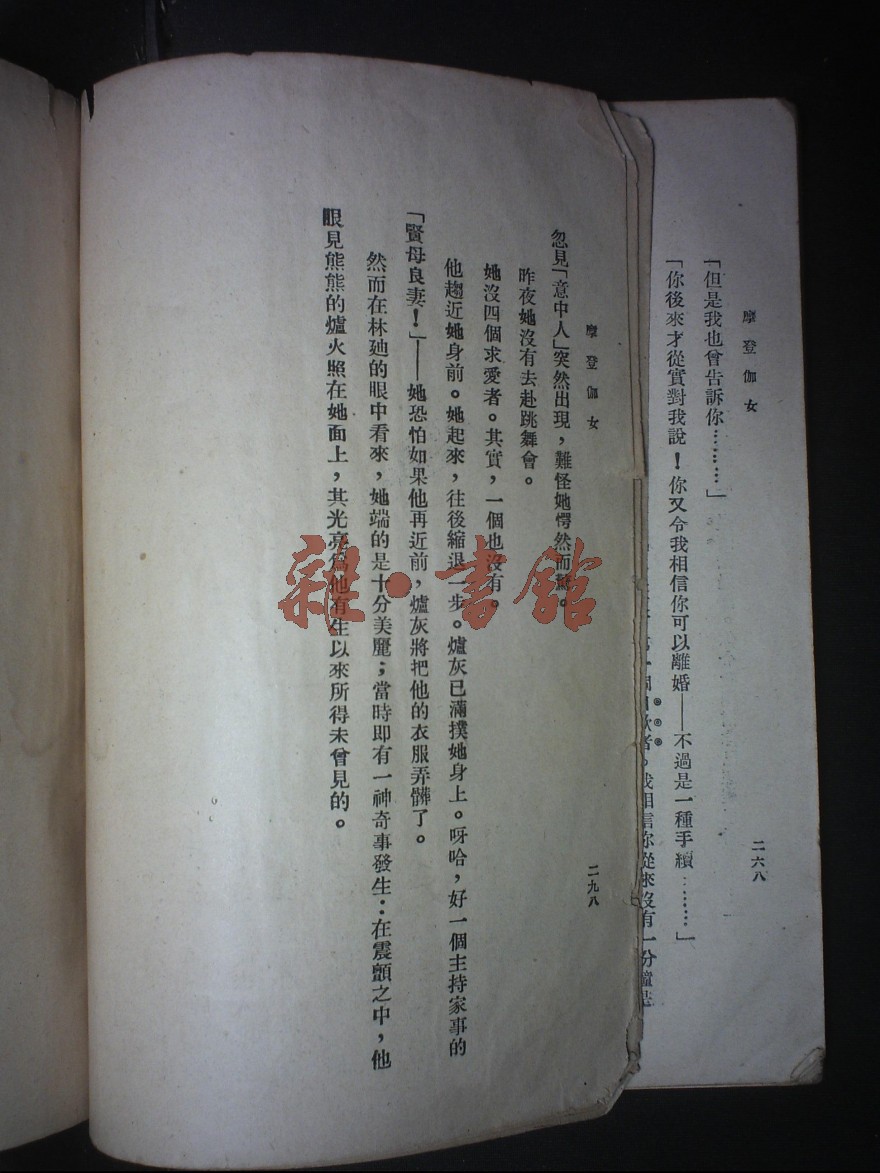 摩登伽女
二六八
「但是我也曾告訴你………」
「你後來才從實對我說！你又令我相信你可以離婚——不過是一種手續………」
者。我相信你從來沒有一分鐘忘
摩登伽女
二九八
忽見「意中人」突然出現，難怪她愕然而驚。
昨夜她沒有去赴跳舞會。
她沒四個求愛者。其實，一個也沒有。
他趨近她身前。她起來，往後縮退一步。爐灰已滿撲她身上。呀哈，好一個主持家事的
「賢母良妻！」——她恐怕如果他再近前，爐灰將把他的衣服弄髒了。
然而在林廸的眼中看來，她端的是十分美麗；當時即有一神奇事發生：在震顫之中，他
眼見熊熊的爐火照在她面上，其光亮爲他有生以來所得未曾見的。
雜·書館